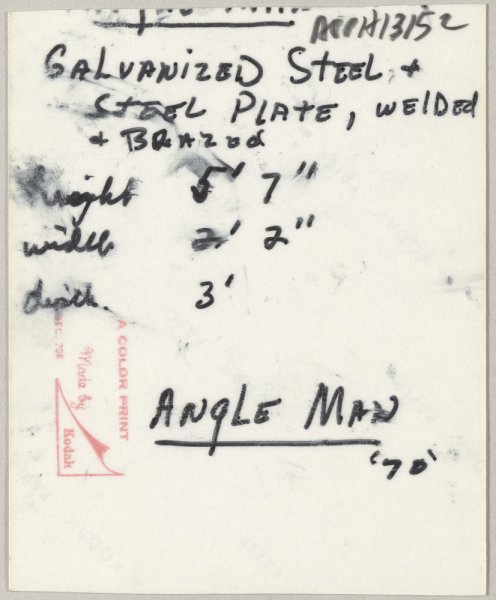 ANGLE MAN
ACCH13152
GALVANIZED STEEL +
STEEL PLATE, WELDED
+ BRAZED
height 5' 7"
width 2' 2"
3'
A COLOR PRINT
Made by
Kodak
DEC. 70R
ANGLE MAN
'70'